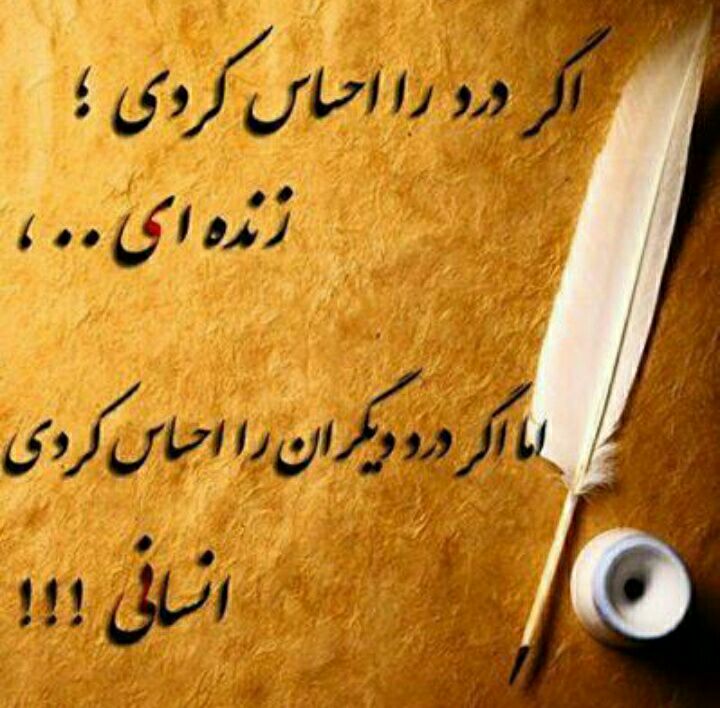 اگر درد را احساس کردی ؛
زنده ای .. ،
اما اگر درد دیگران را احساس کردی
انسانی !!!